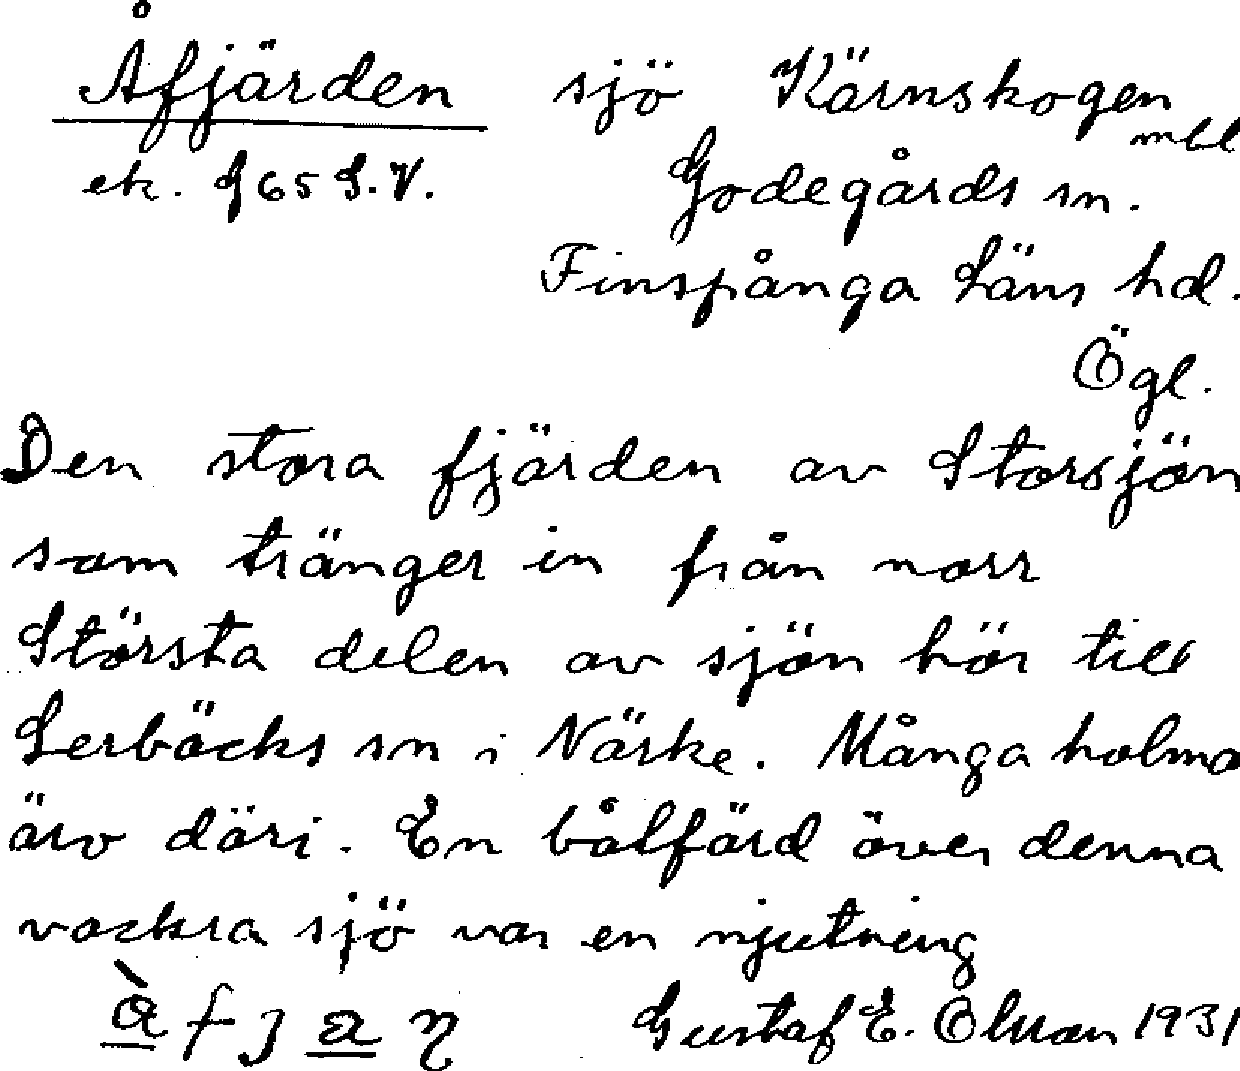 Åfjärden sjö Kärnskogen
mbl
ek. G 65 S.V. Godegårds sn.
Finspånga Läns hd.
Ögl.
Den stora fjärden av Storsjön
som tränger in från norr
Största delen av sjön hör till
Lerbäcks sn i Närke. Många holma
äro däri. En båtfärd över denna
vackra sjö var en njutning
Gustaf E. Olsson 1931